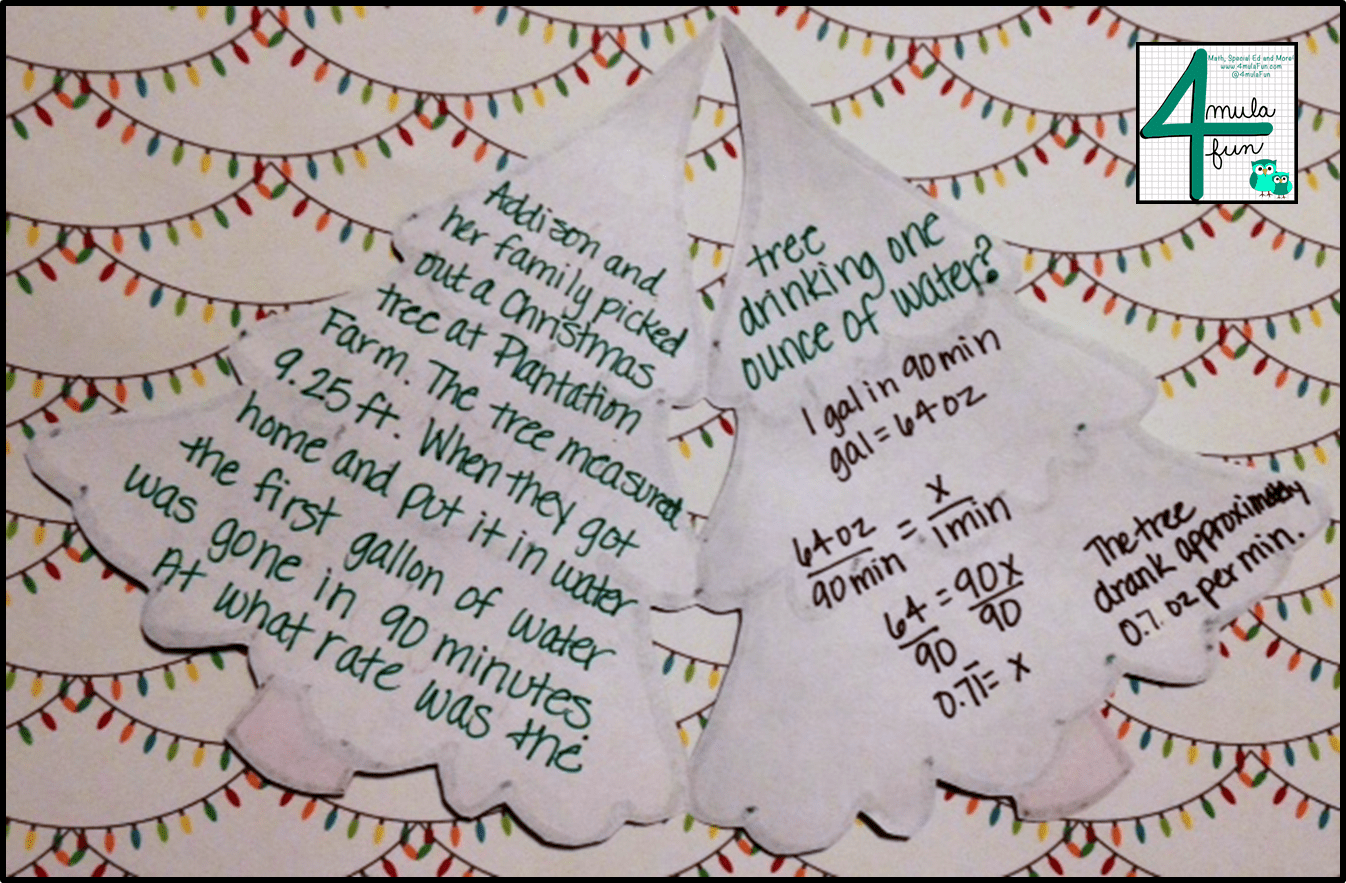 Addison and
her family picked
out a Christmas
tree at Plantation
Farm. The tree measured
9.25 ft. When they got
home and put it in water
the first gallon of water
was gone in 90 minutes.
At what rate was the
tree
drinking one
ounce of water?
1 gal in 90 min
gal = 64 oz
64 oz = x
90 min 1 min
64 = 90x
90 90
0.71̅ = x
The tree
drank approximately
0.7 oz per min.
Math, Special Ed and More!
www.4mulaFun.com
@4mulaFun
4 mula
fun